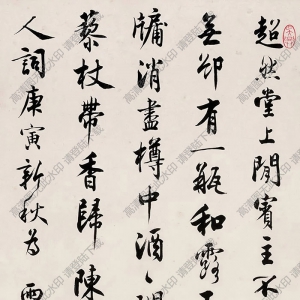 超然堂上閒賓主不
無卻有一瓶和露
牖消盡樽中酒〻
藜杖帶香歸陳
人詞庚寅新秋為